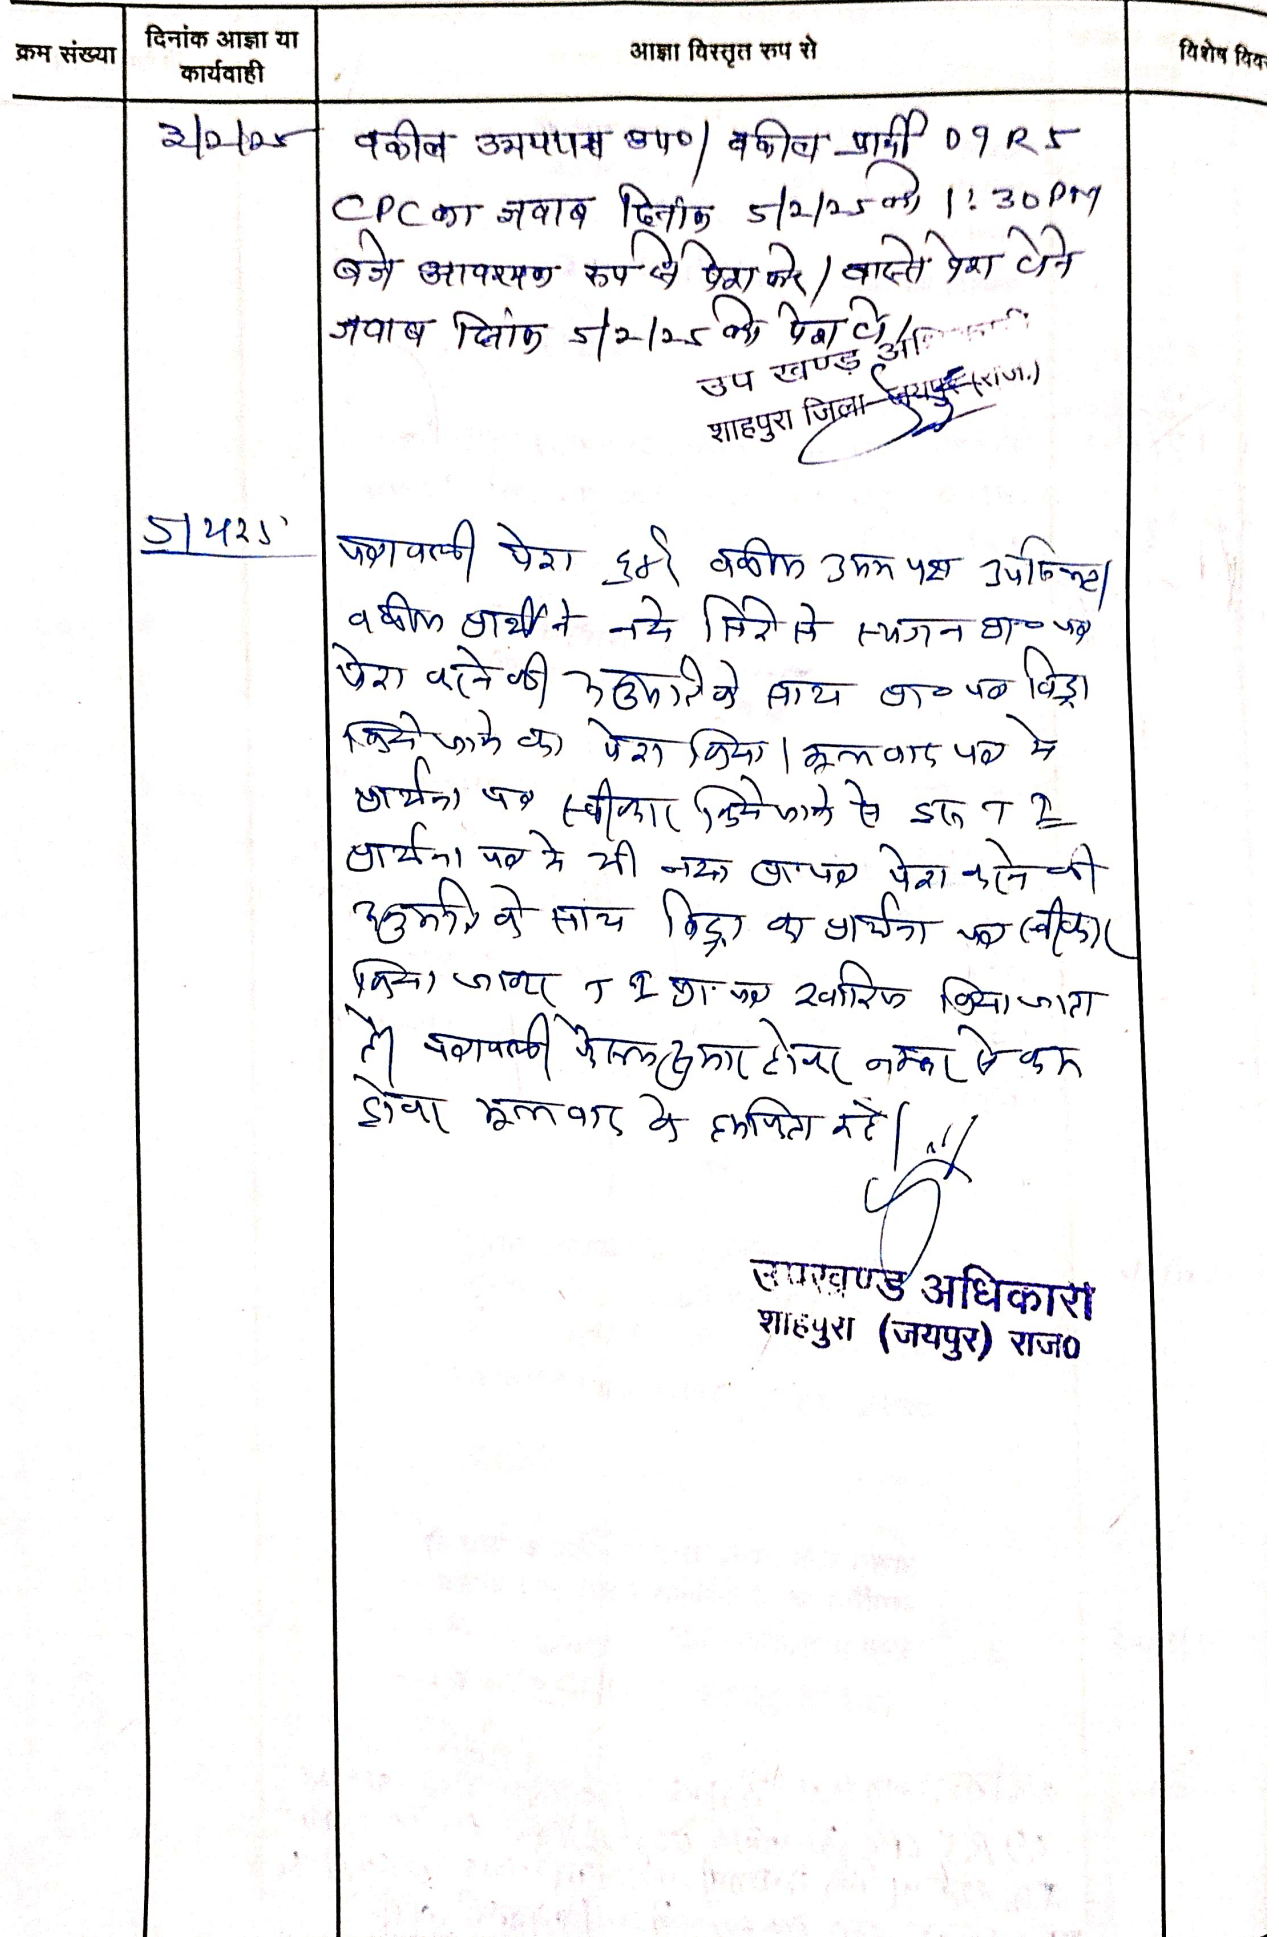 क्रम संख्या
दिनांक आज्ञा या
कार्यवाही
आज्ञा विस्तृत रूप से
विशेष विव
3/2/25
वकील उभयपक्ष उप०/ वकील प्रार्थी 09 R 5
CPC का जवाब दिनांक 5/2/25 को 1:30 PM
बजे आवश्यक रूप से पेश करे/ वास्ते पेश होने
जवाब दिनांक 5/2/25 को पेश हो/
उप खण्ड अधिकारी
शाहपुरा जिला-जयपुर (राज.)
पत्रावली पेश हुई। वकील उभय पक्ष उपस्थित।
वकील प्रार्थी ने नये सिरे से स्थगन प्रा० पत्र
पेश करने की अनुमति के साथ प्रा० पत्र विड्रा
किये जाने का पेश किया। मूल वाद पत्र मे
प्रार्थना पत्र स्वीकार किये जाने से इस T I
प्रार्थना पत्र मे भी नया प्रा० पत्र पेश करने की
अनुमति के साथ विड्रा का प्रार्थना पत्र स्वीकार
किया जाकर T I प्रा० पत्र खारिज किया जाता
है। पत्रावली फैसल शुमार होकर नम्बर से कम
होकर मूल वाद के शामिल रहे।
उपखण्ड अधिकारी
शाहपुरा (जयपुर) राज0